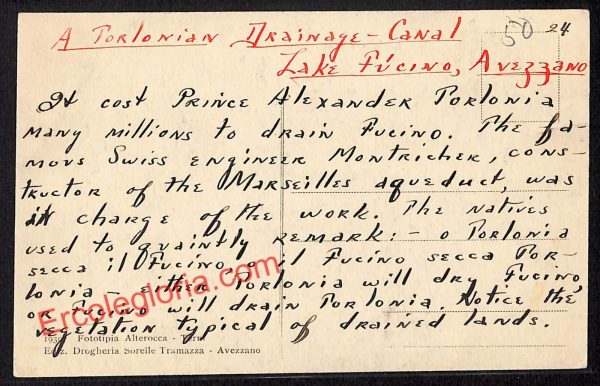 A Torlonian Drainage-Canal
50 24
Lake Fúcino, Avezzano
It cost Prince Alexander Torlonia
many millions to drain Fucino. The fa-
mous Swiss engineer Montricher, cons-
tructor of the Marseilles aqueduct, was
in charge of the work. The natives
used to quaintly remark: - o Torlonia
secca il Fucino, o il Fucino secca Tor-
lonia - either Torlonia will dry Fucino,
or Fucino will drain Torlonia. Notice the
vegetation typical of drained lands.
Ercolegloria.com
Fototipia Alterocca - Terni
Ediz. Drogheria Sorelle Tramazza - Avezzano